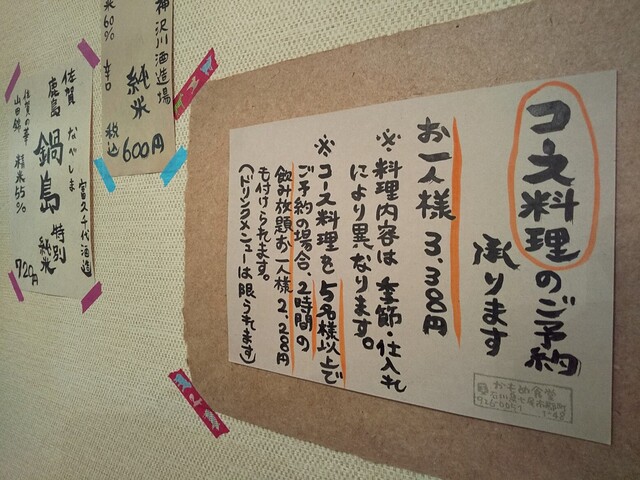 コース料理のご予約
承ります
お一人様 3,380円
※料理内容は季節・仕入れ
により異なります。
※コース料理を5名様以上で
ご予約の場合、2時間の
飲み放題お一人様2,280円
も付けられます。
(ドリンクメニューは限られます)
かもめ食堂
神沢川酒造場
純米 600円
米60% 辛口 税込
富久千代酒造
佐賀 なべしま
鹿島 鍋島 特別純米
佐賀の華 精米55% 720円
山田錦